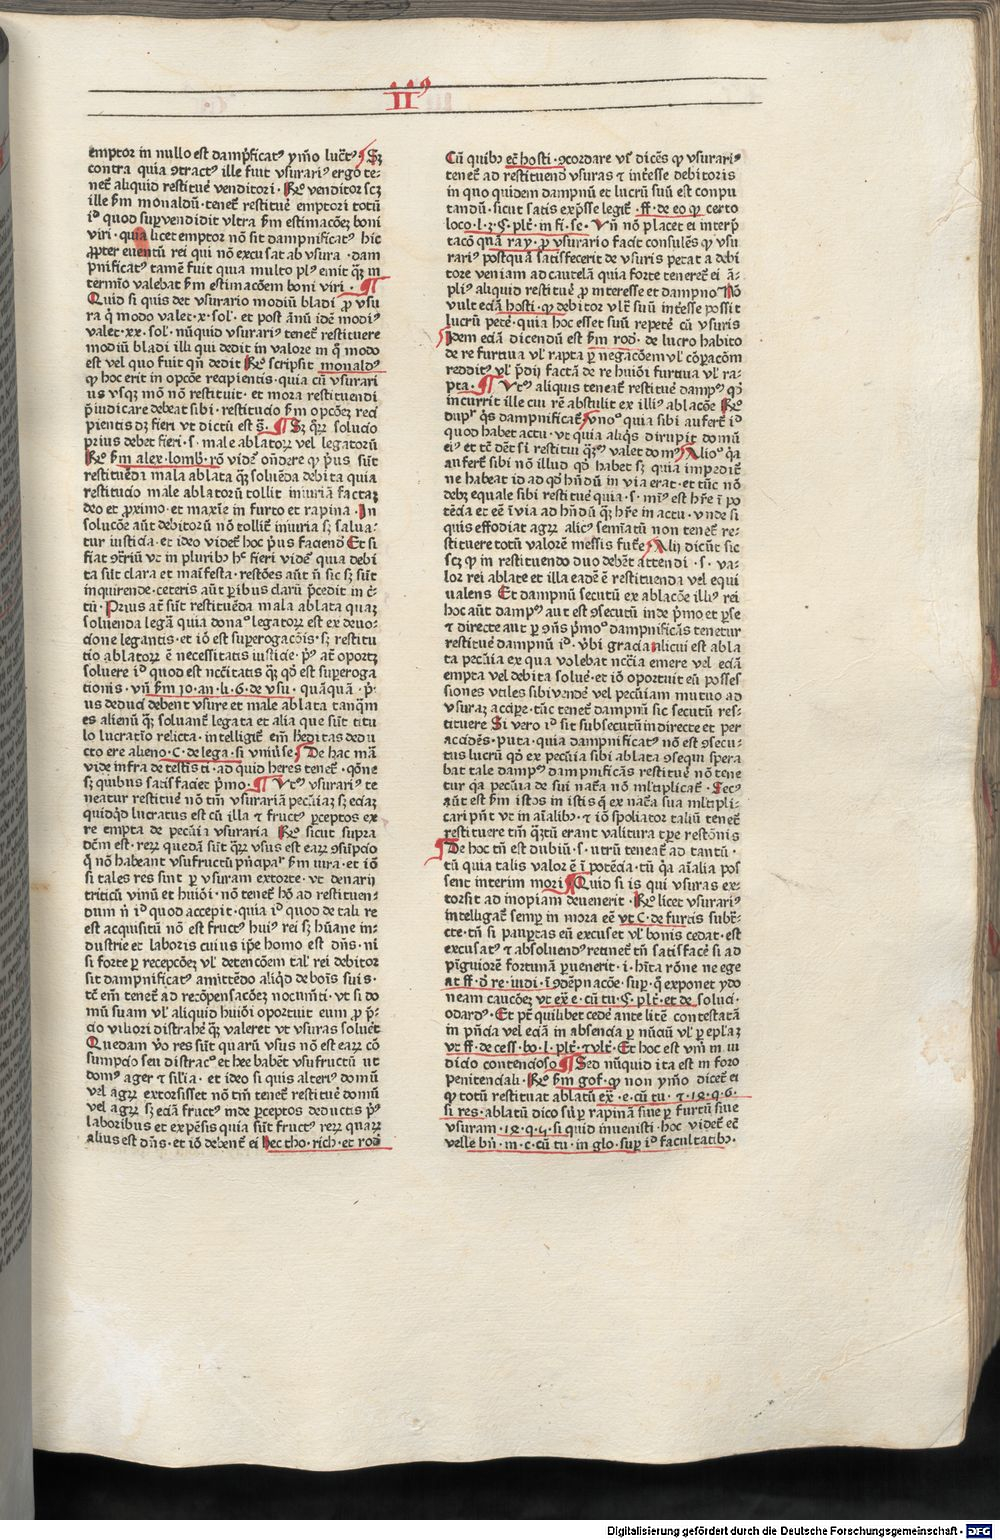 IIꝰ
emptor in nullo est dampͥficatꝰ ymͦo luc̄tꝰ· Sꝫ
contra quia ꝯtractꝰ ille fuit vsurariꝰ ergo te-
net̄ aliquid restitue᷑ venditori· Rͦ venditor scꝫ
ille ẜm monaldū·tenet̄ restitue᷑ emptori totū
iͩ quod suꝑvendidit vltra ẜm estimacōeꝫ boni
viri·quia licet emptor nō sit dampnificatꝰ hic
ꝓpter euentū rei qui nō excusat ab vsura·dam
pnificatꝰ tamē fuit quia multo plꝰ emit qͣꝫ in
termīo valebat ẜm estimacōem boni viri· ¶
Quid si quis det vsurario modiū bladi ꝓ vsu
ra qͥ modo valet·x·sol᷑·et post ānū idē modiꝰ
valet·xx·sol᷑·nūquid vsurariꝰ tenet̄ restituere
modiū bladi illi qui dedit in valore in qͦ modo
est vel quo fuit qn̄ dedit Rͦ scripsit monaldꝰ
ꝙ hoc erit in opcōe recipientis·quia cū vsurari
us vsqꝫ mō nō restituit·et mora restituendi
p̄iudicare debeat sibi·restitucio ẜm opcōeꝫ reci
pientis dꝫ fieri vt dictū est s̄· ¶ Sꝫ qͣꝝ solucio
prius debet fieri·s·male ablatoꝝ vel legatorū
Rͦ ẜm alex·lomb·rō vide᷑ on̄dere ꝙ p̄us sūt
restituēda mala ablata qͣꝫ soluēda debita quia
restitucio male ablatorū tollit iniuriā factaꝫ
deo et ꝓximo·et maxīe in furto et rapina·In
solucōe aūt debitorū nō tollit̄ iniuria sꝫ salua-
tur iusticia·et ideo videt̄ hoc p̄us faciend Et si
fiat ꝯtͥriū vt in pluribꝰ hͨ fieri vide᷑ quia debi
ta sūt clara et maīfesta·restōes aūt n̄ sic sꝫ sūt
inquirende·ceteris aūt ꝑibus clarū p̄cedit in c̄
tū·Prius at̄ sūt restituēda mala ablata quaꝫ
soluenda legā quia donaͦ legatoꝝ est ex deuo-
cione legantis·et iō est suꝑerogacōis·sꝫ restitu
tio ablatoꝝ ē necessitatis iusticie·pͥꝰ at̄ oportꝫ
soluere iͩ quod est nccītatis qͣꝫ qͩ est suꝑeroga
tionis·vn̄ ẜm io·an·li·6·de vsu·quāquā·pͥ·
us deduci debent vsure et male ablata tanqͣm
es alienū qͣꝫ soluant̄ legata et alia que sūt titu
lo lucratiō relicta·intelligit̄ em̄ he᷑ditas dedu
cto ere alieno·C·de lega·si vniūse· De hac ma
vide infra de testis ti·ad quid heres tenet̄·qōne
sꝫ quibus satisfaciet p̄mo· ¶ Vtͬ vsurariꝰ te
neatur restitue᷑ nō tm̄ vsurariā pecūiaꝫ sꝫ eciaꝫ
quidqͩ lucratus est cū illa ⁊ fructꝰ ꝑceptos ex
re empta de pecūia vsuraria Rͦ sicut supra
dcm̄ est·reꝝ quedā sūt qͣꝝ vsus est eaꝝ ꝯsūpcio
qͥ nō habeant vsufructū pn̄cipaͬ ẜm iura·et iō
si tales res sint ꝑ vsuram extorte·vt denarij
triticū vinū et huiōi·nō tenet̄ hō ad restituen-
dum n̄ iͩ quod accepit·quia iͩ quod de tali re
est acquisitū nō est fructꝰ huiꝰ rei sꝫ hūane in-
dustrie et laboris cuius ip̄e homo est dn̄s·ni
si forte ꝑ recepcōeꝫ vl᷑ detencōem tal᷑ rei debitor
sit dampnificatꝰ amittēdo aliqͥd de boīs suis·
tc̄ em̄ tenet̄ ad recōpensacōeꝫ nocumtī·vt si do
mū suam vl᷑ aliquid huiōi oportuit eum ꝓ p̄-
cio viliori distrahe᷑ qͣꝫ valeret vt vsuras solue᷑t
Quedam vͦo res sūt quarū vsus nō est eaꝝ cō
sumpcio seu distracͦ et hee habēt vsufructū ut
domꝰ ager ⁊ sil᷑ia·et ideo si quis alteriꝰ domū
vel agꝝ extorsisset nō tm̄ tenet̄ restitue᷑ domū
vel agꝝ sꝫ eciā fructꝰ inde ꝑceptos deductis pͥꝰ
laboribus et expēsis quia sūt fructꝰ reꝝ quaꝝ
alius est dn̄s·et iō debent̄ ei hec tho·rich·et rod
Cū quibꝫ ec̄ hosti·ꝯcordare vr̄ dicēs ꝙ vsurariꝰ
tenet̄ ad restituend vsuras ⁊ int̄esse debitoris
in quo quidem dampnū et lucrū suū est conpu
tandū·sicut satis exp̄sse legit̄·ff·de eo qͩ certo
loco·l·2·§·plt̄·in fi·se· Vn̄ nō placet ei interp̄
tacō quā ray·ꝓ vsurario facit consulēs ꝙ vsu
rariꝰ postquā satisfecerit de vsuris petat a debi
tore veniam ad cautelā quia forte teneret̄ ei ā-
pliꝰ aliquid restitue᷑ ꝓ interesse et dampno Nō
vult eciā hosti·ꝙ debitor vlt̄ suū int̄esse possit
lucrū pete᷑·quia hoc esset suū repete᷑ cū vsuris
Idem eciā dicendū est ẜm rod·de lucro habito
de re furtiua vl᷑ rapta ꝑ negacōem vl᷑ cōꝑacōm
reddit̄ vl᷑ p̄dij factā de re huiōi furtiua vl᷑ ra-
pta· ¶ Vtͬ aliquis teneat̄ restitue᷑ dampꝰ qͩ
incurrit ille cui rē abstulit ex illiꝰ ablacōe Rͦ
dupͬ qͥs dampnificat̄ Vnoͦ quia sibi aufert̄ iͩ
quod habet actu·vt quia aliqͥs dirupit domū
eiꝰ et tc̄ det̄ si restitui qͣꝫtͫ valet domꝰ Alioͦ qͥa
aufert̄ sibi nō illud qͩ habet sꝫ quia impedit̄
ne habeat id ad qͩ hn̄dū in via erat·et tūc nō
debꝫ equale sibi restitue quia·s·mīꝰ est hr̄e ī po
tēcia et eē ī via ad hn̄dū qͣꝫ hr̄e in actu·vnde si
quis effodiat agꝝ alicͥ semīatū non tenet̄ re-
stituere totū valorē messis fute᷑ Alij dicūt sic
scꝫ ꝙ in restituendo duo debēt attendi·s·va-
lor rei ablate et illa eadē ē restituenda vel equi
ualens Et dampnū secutū ex ablacōe illiꝰ rei
hoc aūt dampꝰ aut est ꝯsecutū inde p̄mo et ꝑse
⁊ directe aut ꝑ ꝯn̄s p̄moͦ dampnificās tenetur
restitue᷑ dampnū iͩ· vͥbi gracia alicui est abla
ta pecūia ex qua volebat nccīa emere vel eciā
empta vel debita solue᷑·et iō oportuit eū posses
siones vtiles sibi vende᷑ vel pecūiam mutuo ad
vsuraꝫ accipe᷑·tūc tenet̄ dampnū sic secutū res-
tituere Si vero iͩ sit subsecutū indirecte et per
accidēs·puta·quia dampnificatꝰ nō est ꝯsecu-
tus lucrū qͩ ex pecūia sibi ablata ꝯseqm spera
bat tale dampꝰ dampnificās restitue᷑ nō tene
tur qͥa pecūia de sui nat̄a nō ml̄tiplicat̄· Secꝰ
aūt est ẜm istos in istis q̄ ex nat̄a sua ml̄tipli-
cari pn̄t vt in aīalibꝫ·⁊ iō spoliator taliū tenet̄
restituere tm̄ qͣꝫtū erant valitura tꝑe restōnis
De hoc tn̄ est dubiū·s·utrū teneat̄ ad tantū·
tū quia talis valor ē ī potēcia·tū qͥa aīalia pos
sent interim mori ¶ Quid si is qui vsuras ex-
torsit ad inopiam deuenerit·Rͦ licet vsurariꝰ
intelligat̄ semꝑ in mora eē vt C·de furtis subt̄-
cte·tn̄ si pauꝑtas eū excuset vl᷑ bonis cedat·est
excusatꝰ ⁊ absoluendꝰ retinet̄ tn̄ satisface᷑ si ad
pīguiorē fortunā ꝑuenerit·i·hīta rōne ne ege
at ff·d̄ re·iudi·ī ꝯdēpnacōe·suꝑ·qͥ exponet ydo
neam caucōeꝫ vt ex̄ e·cū tu·§·plt̄·et de soluci·
odardꝰ·Et pt̄ quilibet cede᷑ ante litē contestatā
in pn̄cia vel eciā in absencia ꝑ nūciū vl᷑ ꝑ epl̄aꝫ
vt ff·de cess·bo·l·plt̄·⁊ vlt̄·Et hoc est vn̄ in iu
dicio contencioso ¶ Sed nūquid ita est in foro
penitenciali·Rͦ ẜm gof·ꝙ non ymͦo dicet̄ ei
ꝙ totū restituat ablatū ex·e·cū tu·⁊·12·q·6·
si res·ablatū dico suꝑ rapinā siue ꝑ furtū siue
vsuram·12·q·5·si quid inuenisti·hoc videt̄ ec̄
velle bn̄·in·c·cū tu·in glo·suꝑ iͩ facultatibꝫ·
Digitalisierung gefördert durch die Deutsche Forschungsgemeinschaft - DFG